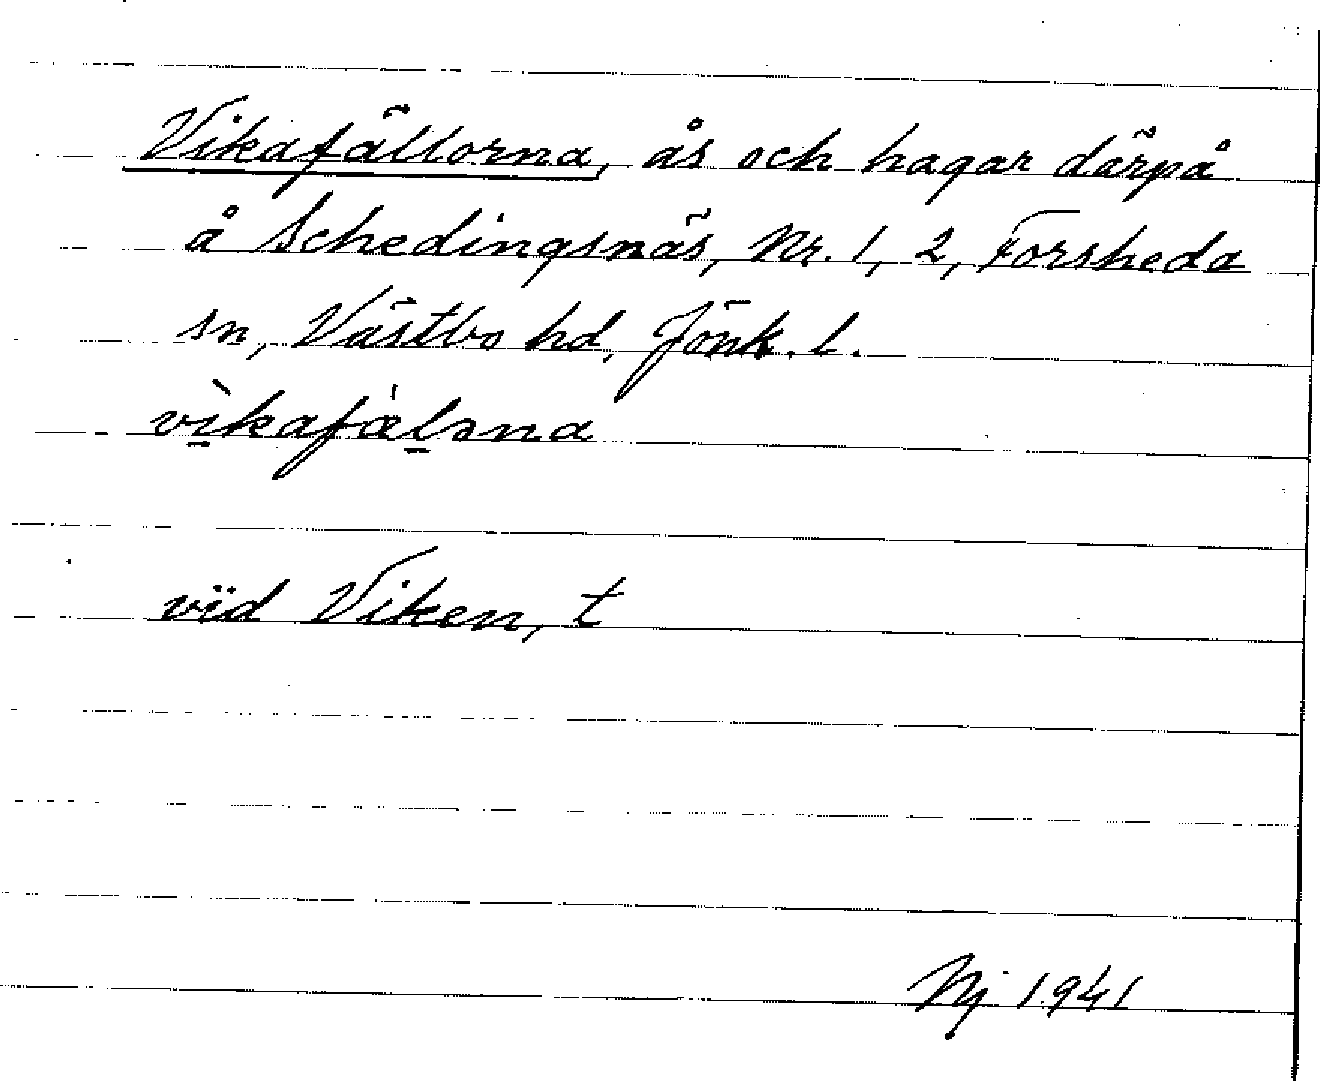 Vikafällorna, ås och hagar därpå
å Schedingsnäs, Nr. 1, 2, Forsheda
sn, Västbo hd, Jönk. l.
vìkafǽlǝna
vid Viken, t
Nj 1941